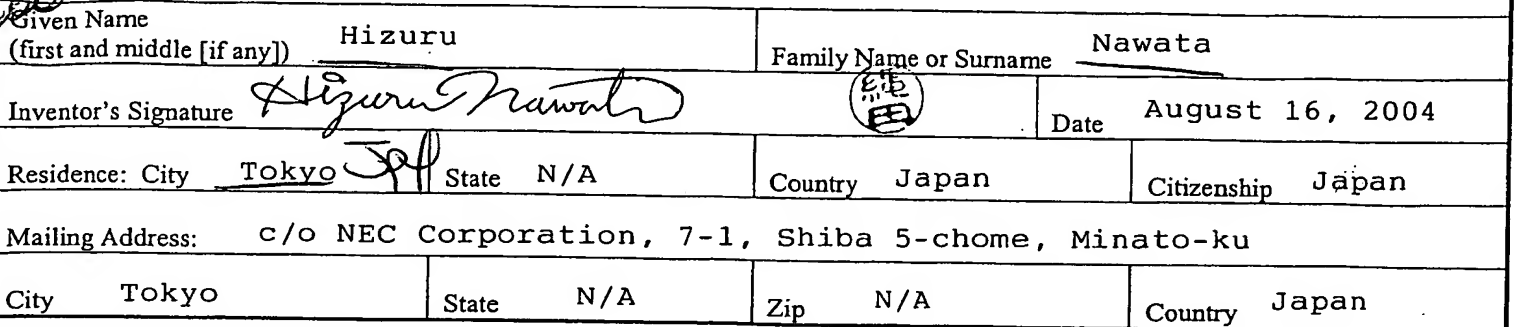 Given Name
(first and middle [if any]) Hizuru Family Name or Surname Nawata
Inventor's Signature Hizuru Nawata 縄田 Date August 16, 2004
Residence: City Tokyo JPX State N/A Country Japan Citizenship Japan
Mailing Address: c/o NEC Corporation, 7-1, Shiba 5-chome, Minato-ku
City Tokyo State N/A Zip N/A Country Japan